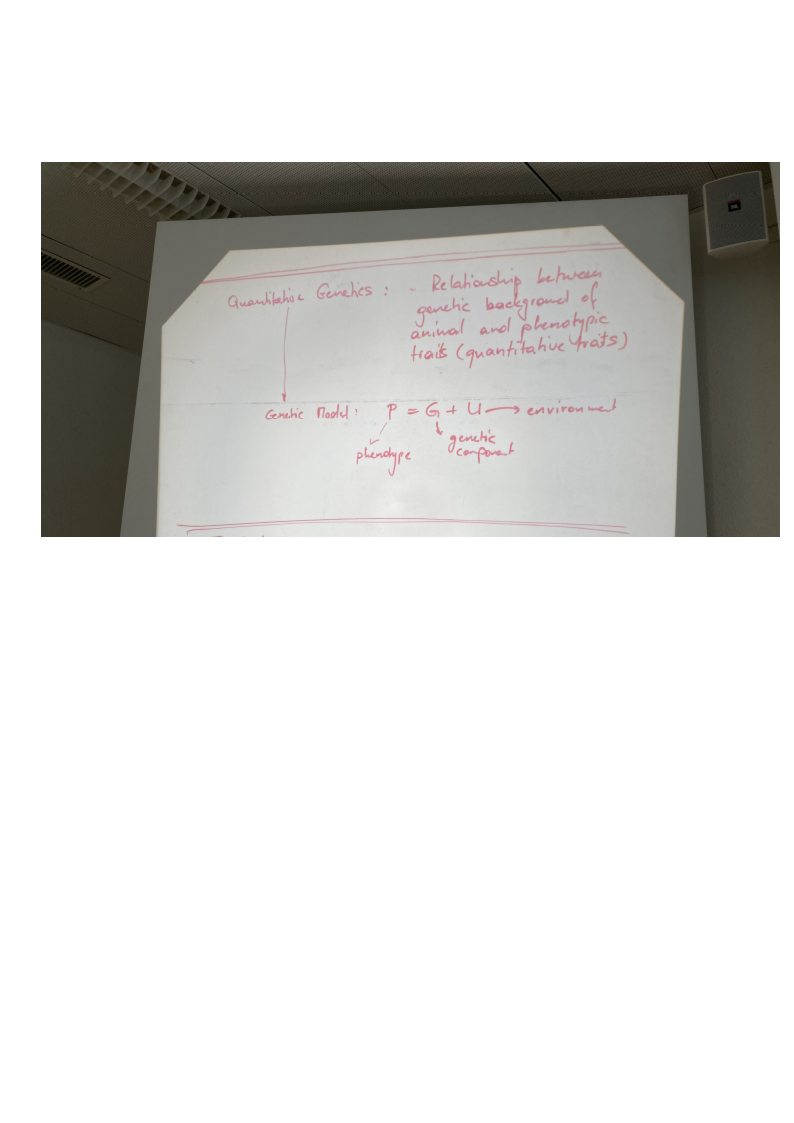 Quantitative Genetics : - Relationship between
genetic background of
animal and phenotypic
traits (quantitative traits)
Genetic Model : P = G + U → environment
genetic
phenotype component
JBL